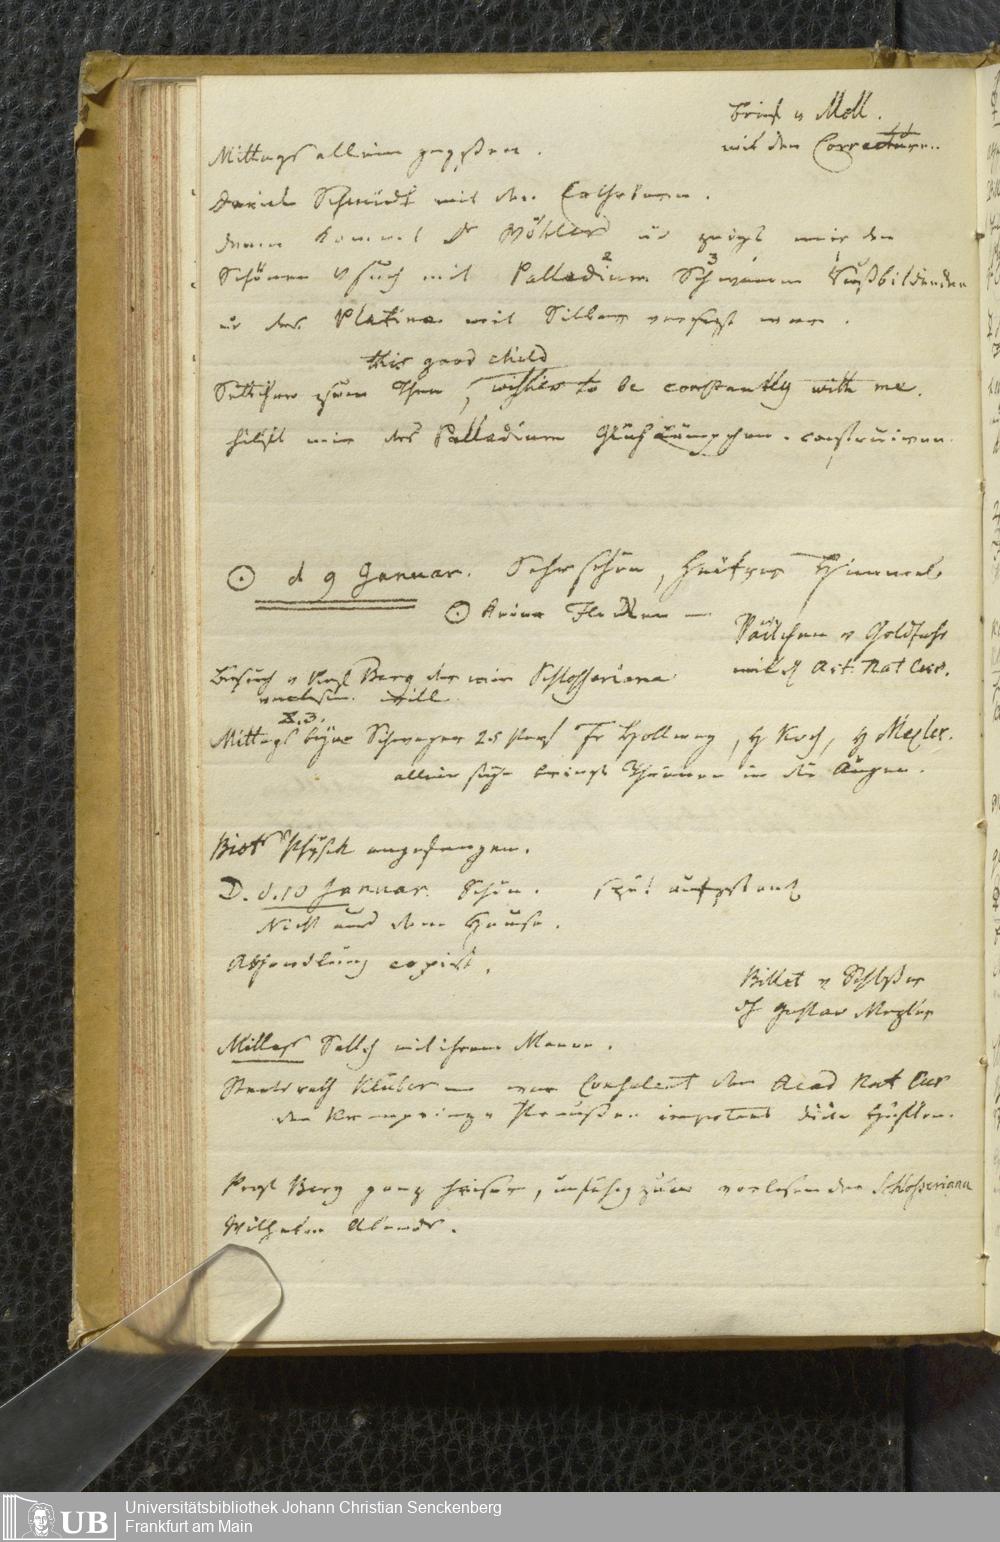 Brief v Moll.
mit den Correcturen.
Mittags allein gegessen.
Schmidt mit den
dann kommt Dr Wöhler u zeigt mir den
Schönen Versuch mit Palladium Schwamm Rußbildenden
u das Platina mit Silber versetzt war.
this good child
Settchen zum Thee, wishes to be constantly with me.
hilft mir das Palladium Glühlämpchen construiren.
☉ d 9 Januar. Sehr schön, heitrer Himmel
☉ keine Flecken —
Päckchen v Goldfuß
mit Act. Nat Cur.
Besuch v Prof Berg der mir Schlosseriana
vorlesen will
X. 3.
Mittags beym Schwager 25 Pers Fr Hollweg, H Koch, H Mezler.
allein bringt Thränen in die Augen.
Biots Physik angefangen.
D. d. 10 Januar. Schön. spät aufgestand
Nicht aus dem Hause.
Abhandlung copirt.
Billet v Schlosser
dh Gustav Mezler
Mittags Settch mit ihrem Manne.
Staatsrath Klüber war Consulent den Acad Nat Cur
den v Preußen
Prof Berg ganz heiser, unfähig zum vorlesen der Schlosseriana
Wilhelm Abends.
UB
Universitätsbibliothek Johann Christian Senckenberg
Frankfurt am Main